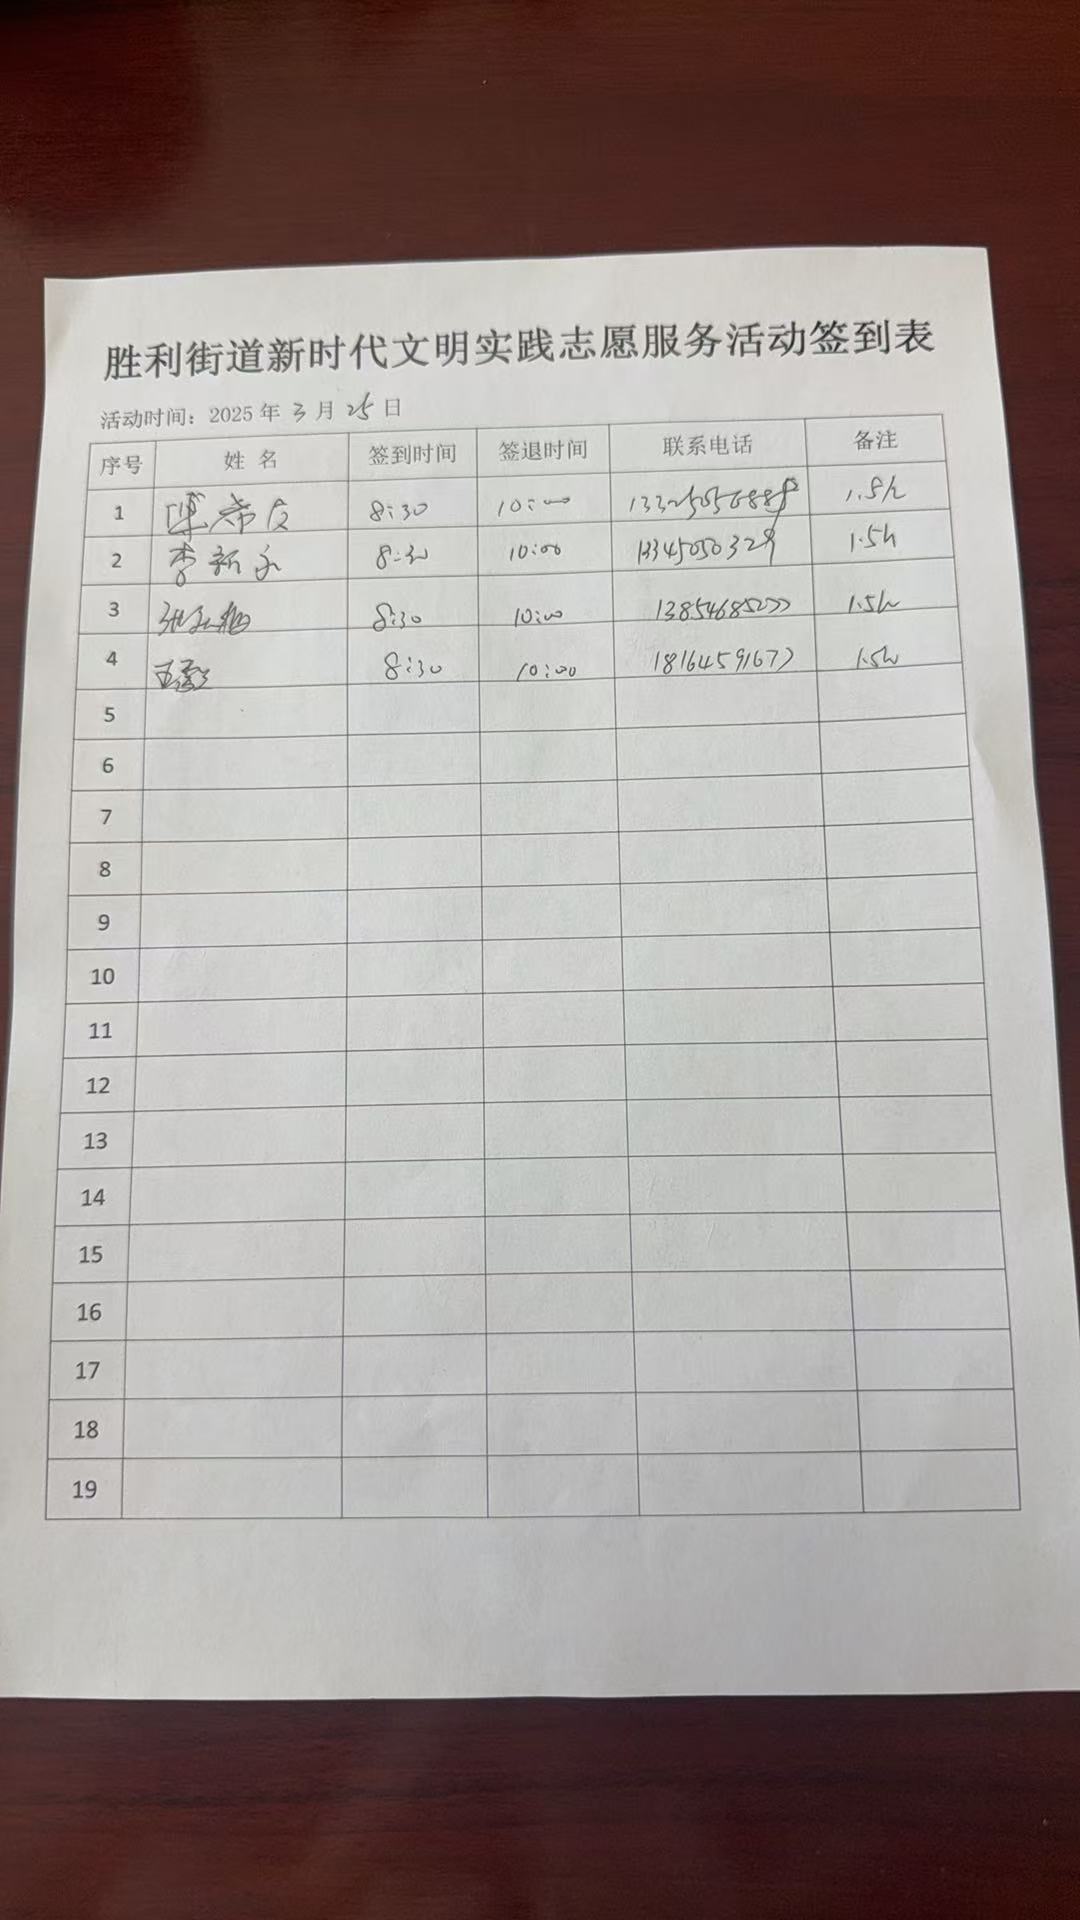 胜利街道新时代文明实践志愿服务活动签到表
活动时间：2025 年 3 月 25 日
序号 姓 名 签到时间 签退时间 联系电话 备注
1 8:30 10:00 1.5h
2 李新永 8:30 10:00 13345050329 1.5h
3 8:30 10:00 13854685277 1.5h
4 王霞 8:30 10:00 18164591677 1.5h
5
6
7
8
9
10
11
12
13
14
15
16
17
18
19